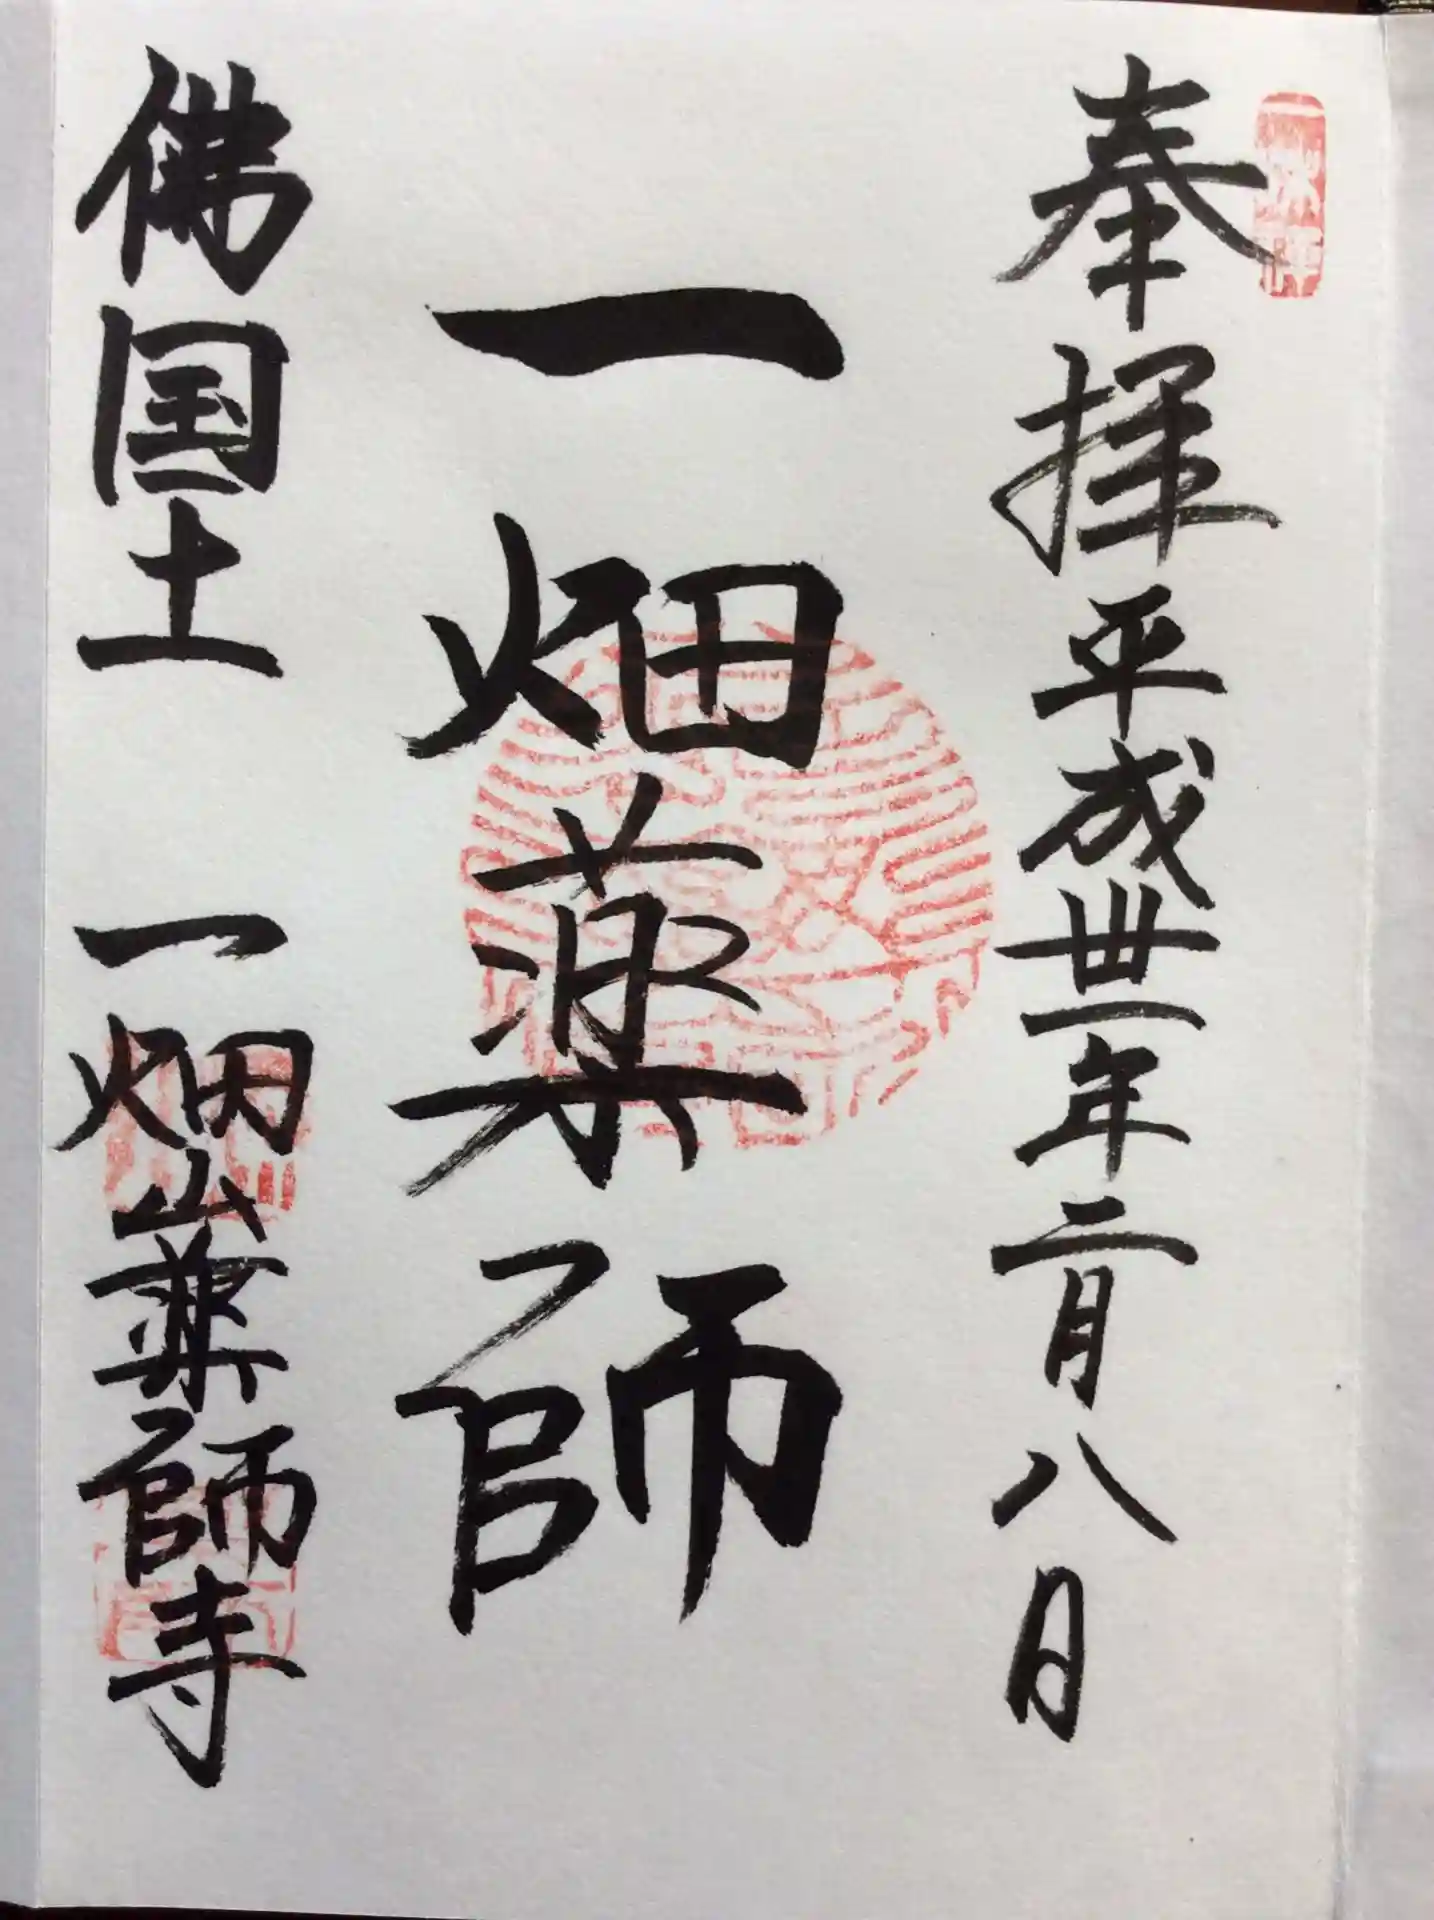 奉拝平成卅一年二月八日
一畑薬師
佛国土 一畑山薬師寺